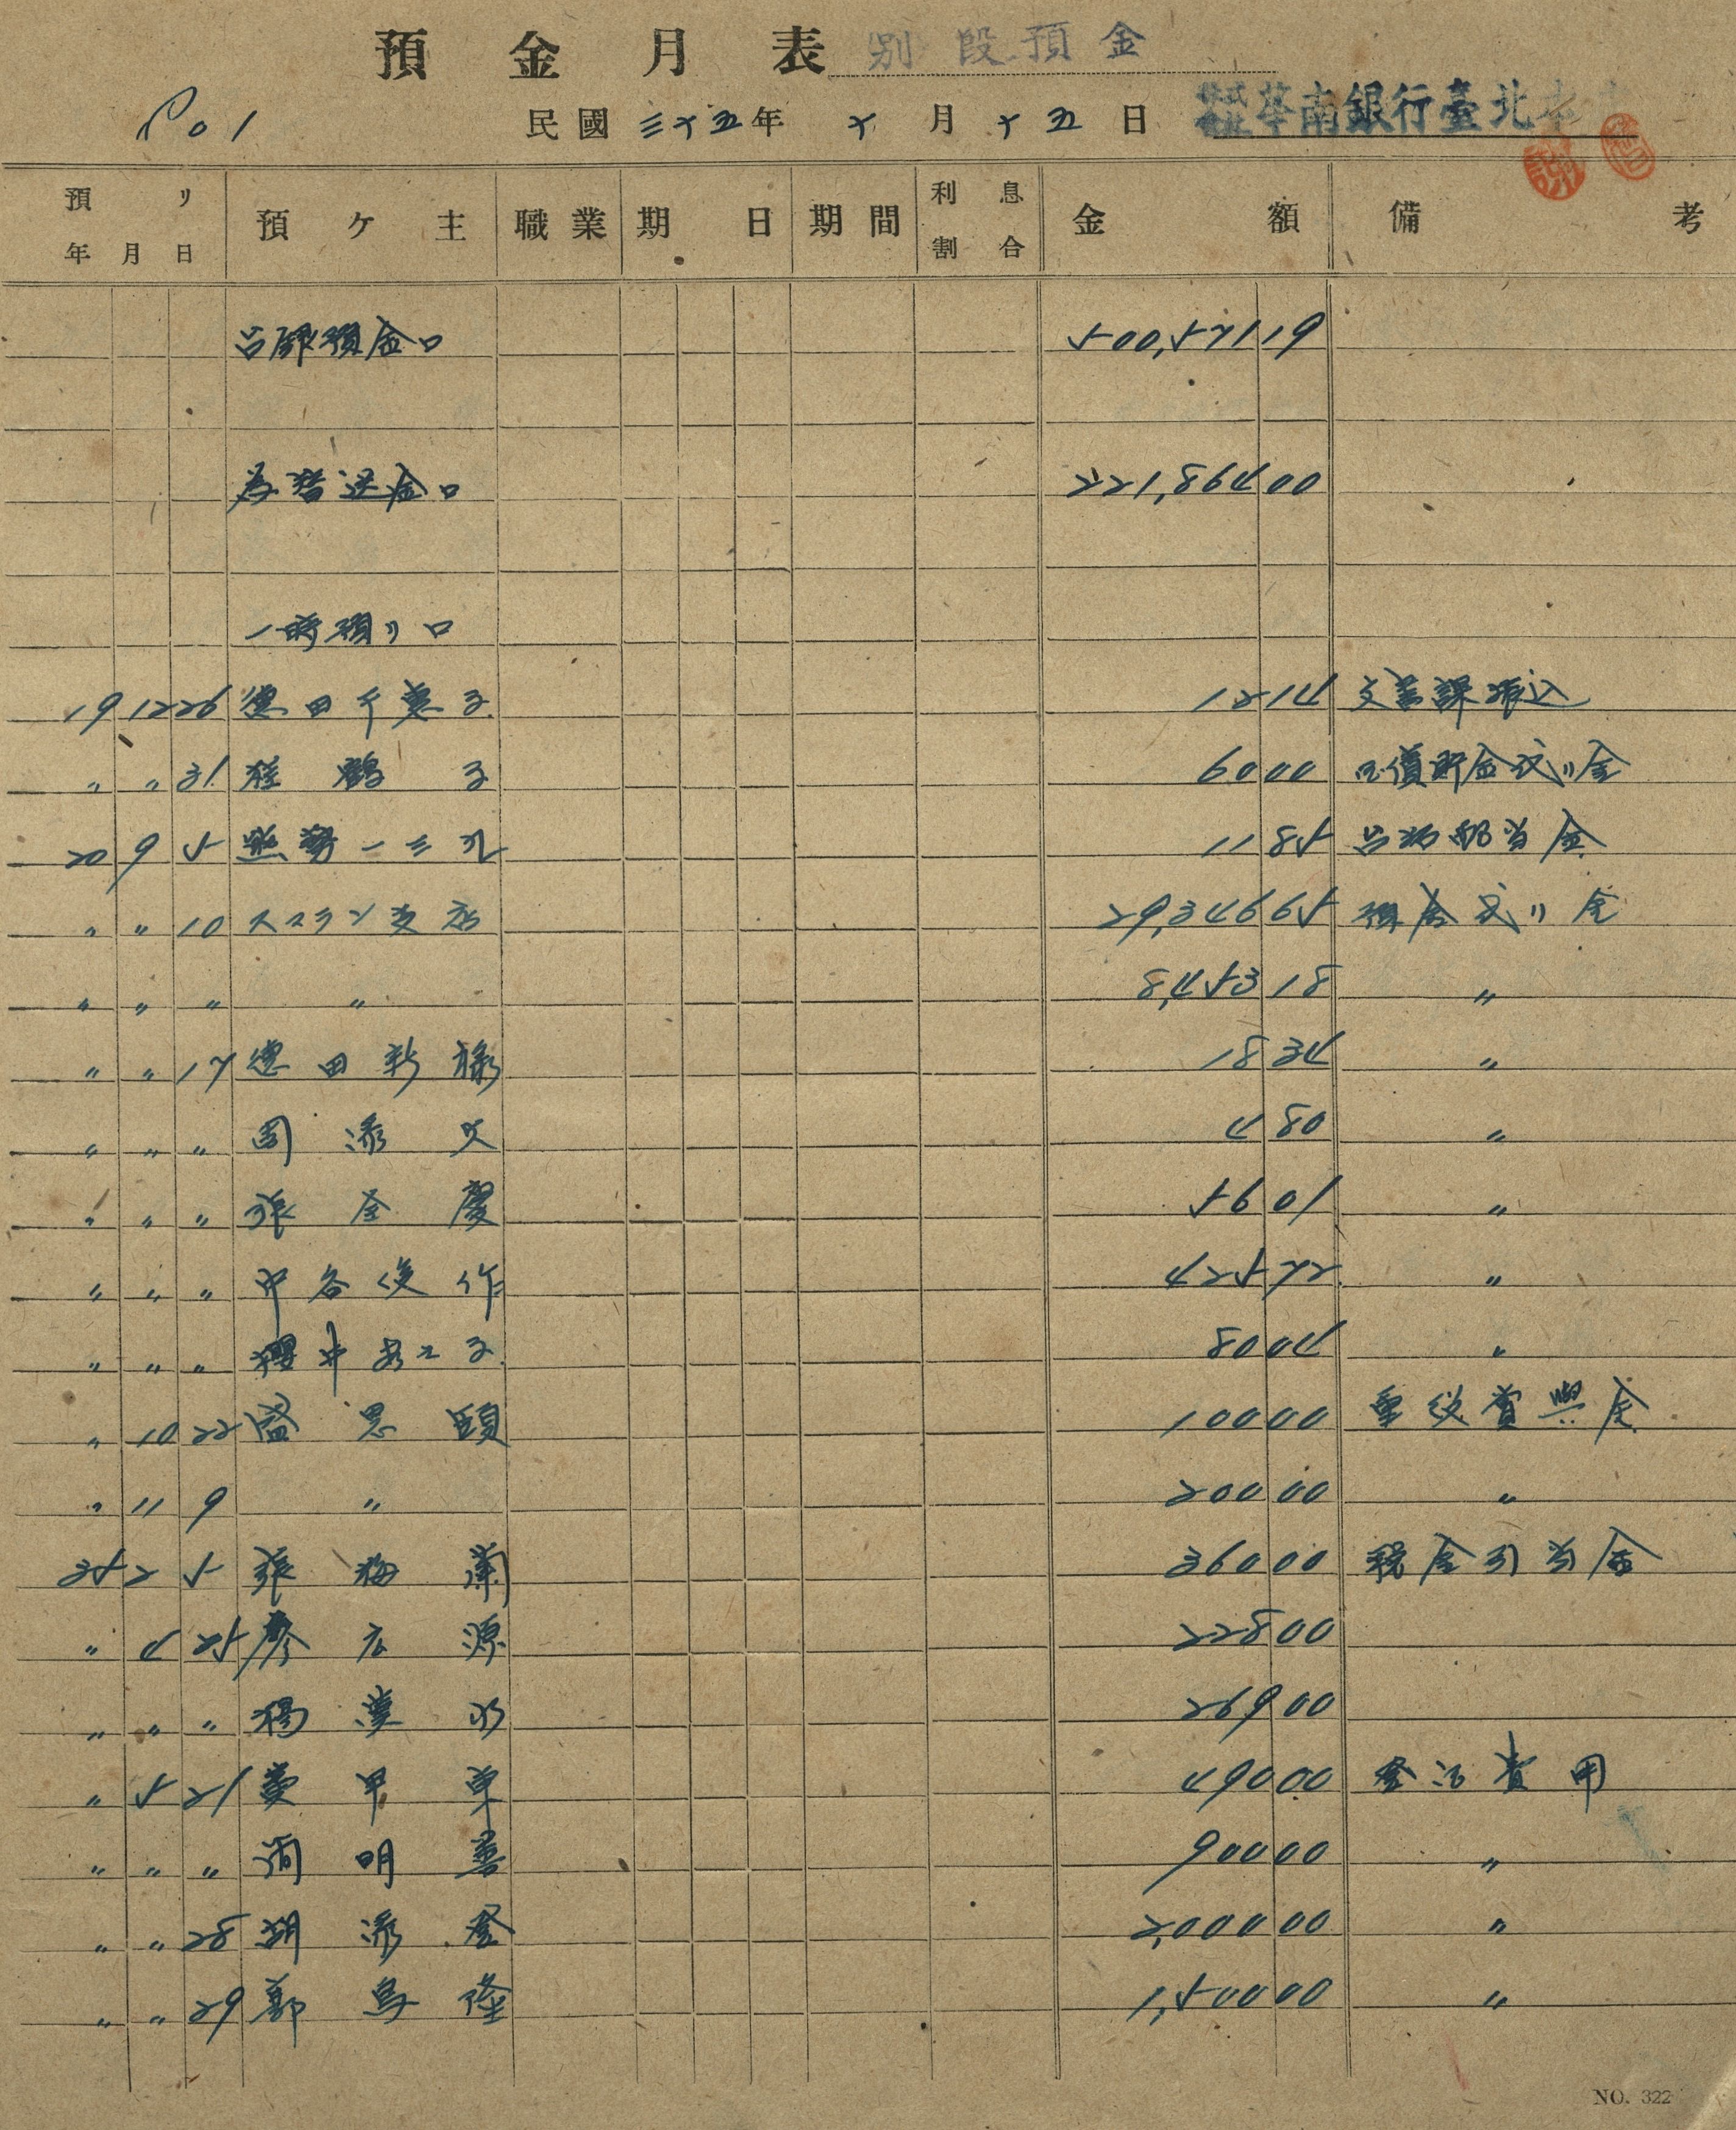 預金月表 別段預金
P o 1 民國三十五年 十月十五日 株式會社華南銀行臺北
預リ年月日 預ケ主 職業 期日 期間 利息割合 金額 備考
台銀預金口 500,571 19
為替送金口 221,864 00
一時預リ口
19 12 26 德田千惠子 12 14 文書課振込
〃 〃 31 鶴子 60 00 貯金戻リ金
20 9 5 一三九 11 85 配当金
〃 〃 10 スマラン支店 29,346 65 預金戻リ金
〃 〃 〃 〃 8,453 18 〃
〃 〃 17 德田新祿 18 34 〃
〃 〃 〃 周添 4 80 〃
〃 〃 〃 張金慶 56 01 〃
〃 〃 〃 中谷俊作 425 72 〃
〃 〃 〃 櫻井 子 80 04 〃
〃 10 22 盛思頤 100 00 重役賞與金
〃 11 9 〃 200 00 〃
35 2 5 張梅蘭 360 00 税金引当金
〃 4 25 廖広源 228 00
〃 〃 〃 楊漢水 269 00
〃 5 21 黄甲草 490 00 登記費用
〃 〃 〃 簡明善 900 00 〃
〃 〃 28 胡添登 2,000 00 〃
〃 〃 29 郭烏隆 1,500 00 〃
NO. 322